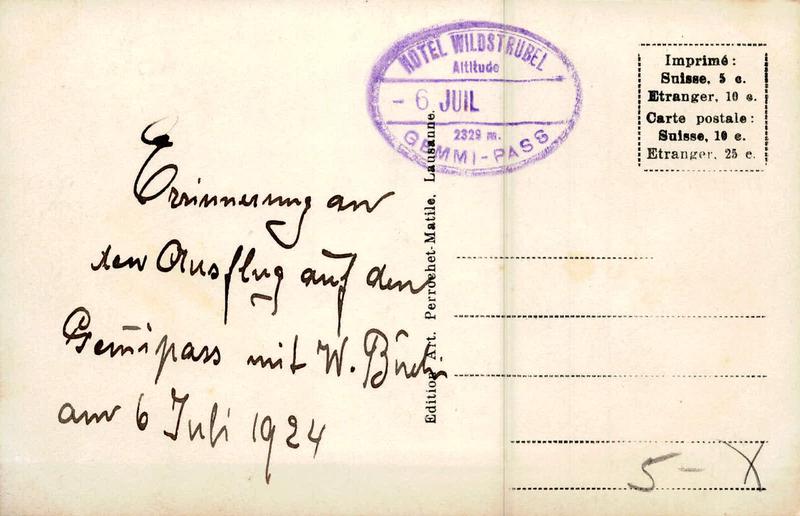 HOTEL WILDSTRUBEL
Altitude
- 6 JUIL
2329 m.
GEMMI-PASS
Imprimé:
Suisse, 5 c.
Etranger, 10 c.
Carte postale:
Suisse, 10 c.
Etranger, 25 c.
Errinnerung an
den Ausflug auf den
Gem̄ipass mit W.
am 6 Juli 1924
Edition Art. Perrochet-Matile, Lausanne.
5 - X